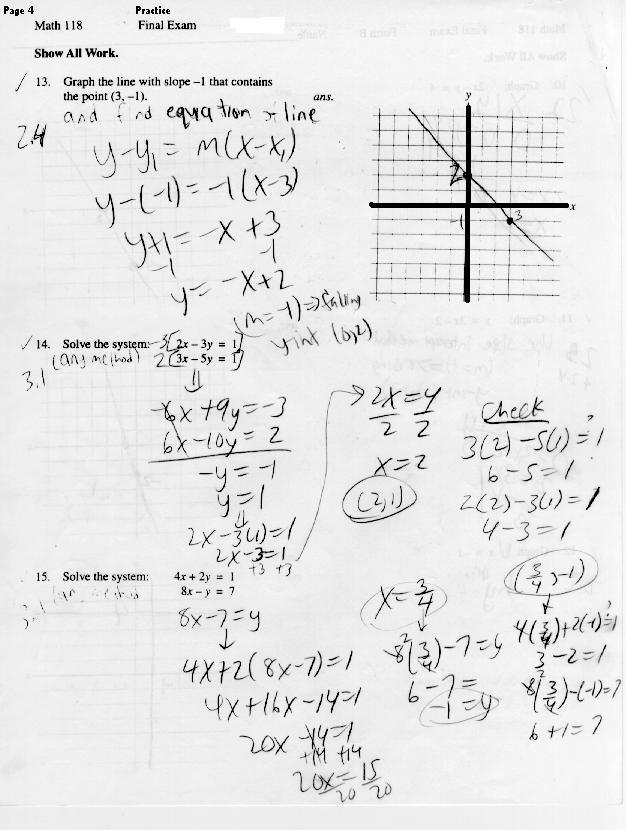 Page 4
Practice
Math 118
Final Exam
Show All Work.
13. Graph the line with slope −1 that contains
the point (3, −1).
ans.
and find equation of line
2.4
y-y₁ = m(x-x₁)
y-(-1) = -1(x-3)
y+1 = -x + 3
-1 -1
y = -x+2
(m=-1) => falling
y int (0,2)
y
x
2
-1
3
14. Solve the system: -3[2x − 3y = 1]
2[3x − 5y = 1]
(any method)
3.1
⇓
-6x + 9y = -3
6x - 10y = 2
-y = -1
y = 1
⇓
2x - 3(1) = 1
2x - 3 = 1
+3 +3
→ 2x = 4
2 2
x = 2
(2,1)
Check
3(2) - 5(1) = 1
?
6 - 5 = 1
2(2) - 3(1) = 1
4 - 3 = 1
15. Solve the system: 4x + 2y = 1
8x − y = 7
3.1
(any method
8x - 7 = y
↓
4x + 2(8x-7) = 1
4x + 16x - 14 = 1
20x - 14 = 1
+14 +14
20x = 15
20 20
x = 3/4
↓
8(3/4) - 7 = y
2
6 - 7 =
-1 = y
(3/4, -1)
↓
4(3/4) + 2(-1) = 1
?
3 - 2 = 1
8(3/4) - (-1) = 7
2
6 + 1 = 7